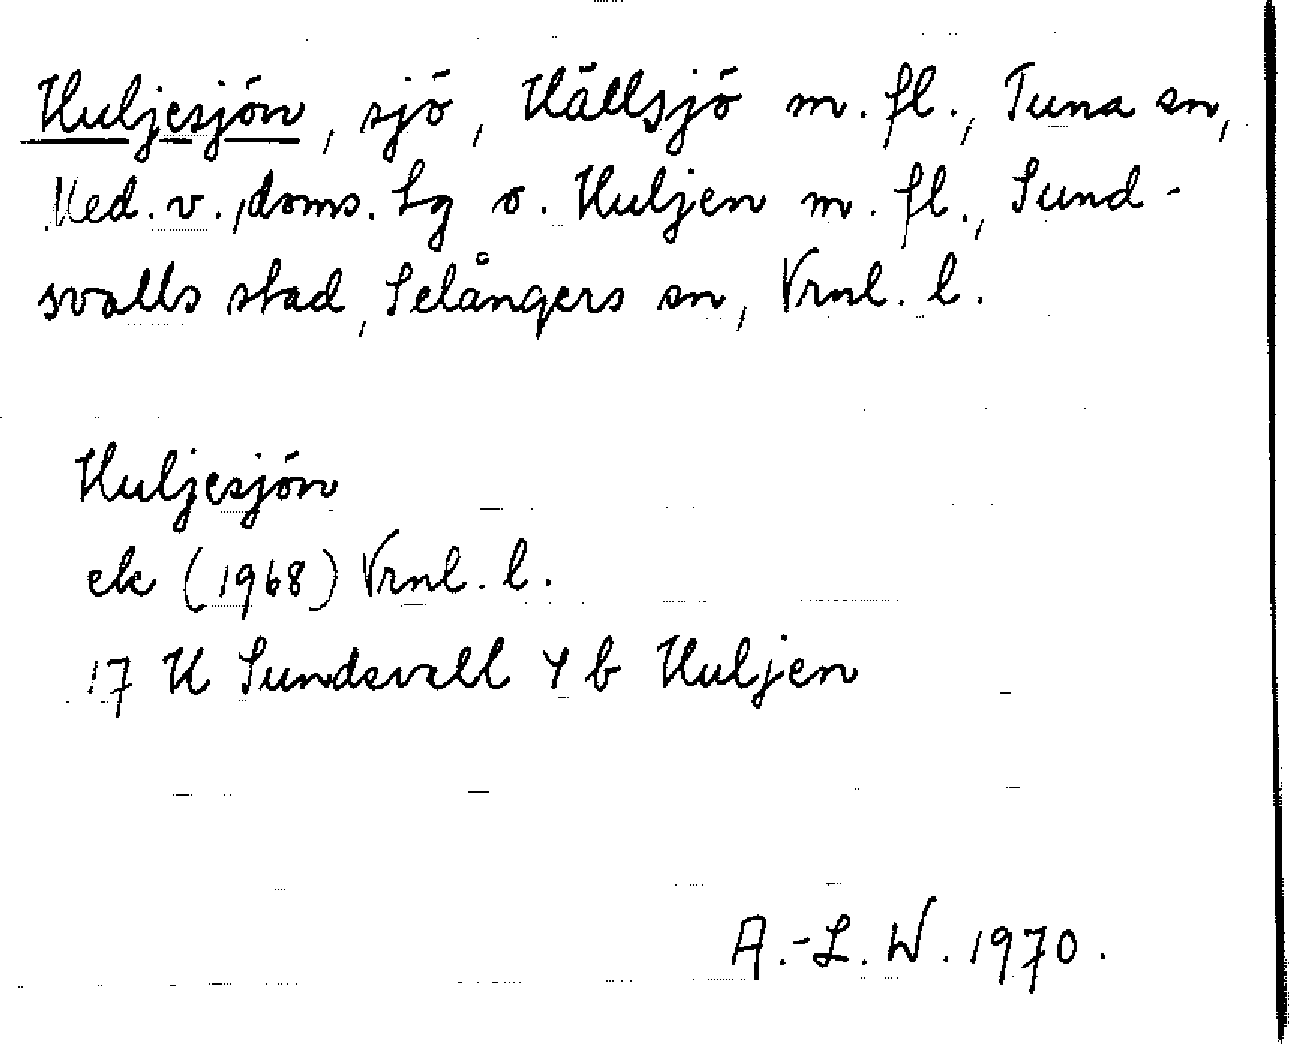 Huljesjön, sjö, Hällsjö m. fl., Tuna sn,
Med. v., doms. Lg o. Huljen m. fl., Sund-
svalls stad, Selångers sn, Vrnl. l.
Huljesjön
ek (1968) Vrnl. l.
17 H Sundsvall 4 b Huljen
A.-L. W. 1970.